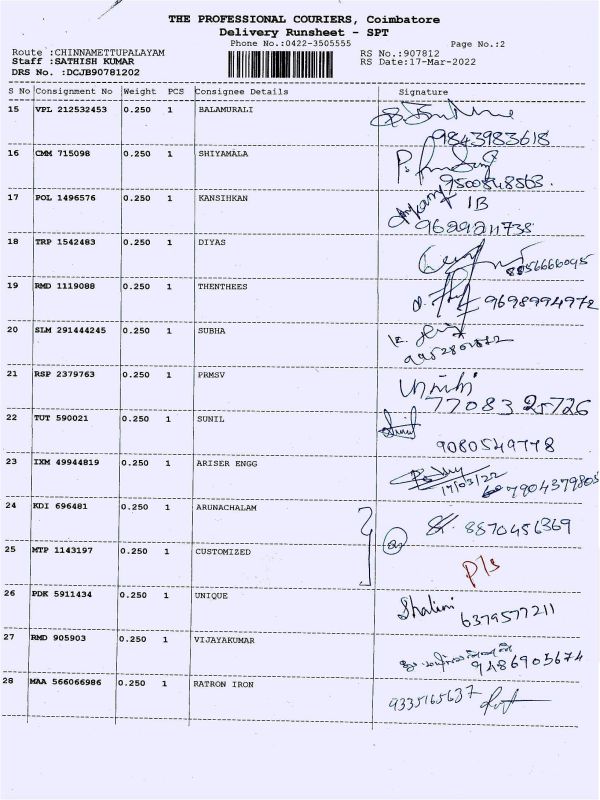 THE PROFESSIONAL COURIERS, Coimbatore
Delivery Runsheet - SPT
Phone No.:0422-3505555 Page No.:2
Route :CHINNAMETTUPALAYAM RS No.:907812
Staff :SATHISH KUMAR RS Date:17-Mar-2022
DRS No. :DCJB90781202
S No Consignment No Weight PCS Consignee Details Signature
15 VPL 212532453 0.250 1 BALAMURALI
9843983618
16 CMM 715098 0.250 1 SHIYAMALA
9500848563.
17 POL 1496576 0.250 1 KANSIHKAN IB
9629211738
18 TRP 1542483 0.250 1 DIYAS
19 RMD 1119088 0.250 1 THENTHEES 9698994972
20 SLM 291444245 0.250 1 SUBHA
21 RSP 2379763 0.250 1 PRMSV
77083 25726
22 TUT 590021 0.250 1 SUNIL
9080549778
23 IXM 49944819 0.250 1 ARISER ENGG
17/03/22 7904379805
24 KDI 696481 0.250 1 ARUNACHALAM
8870456369
25 MTP 1143197 0.250 1 CUSTOMIZED P/s
26 PDK 5911434 0.250 1 UNIQUE Shalini
6379577211
27 RMD 905903 0.250 1 VIJAYAKUMAR
9486905674
28 MAA 566066986 0.250 1 RATRON IRON
9335165637